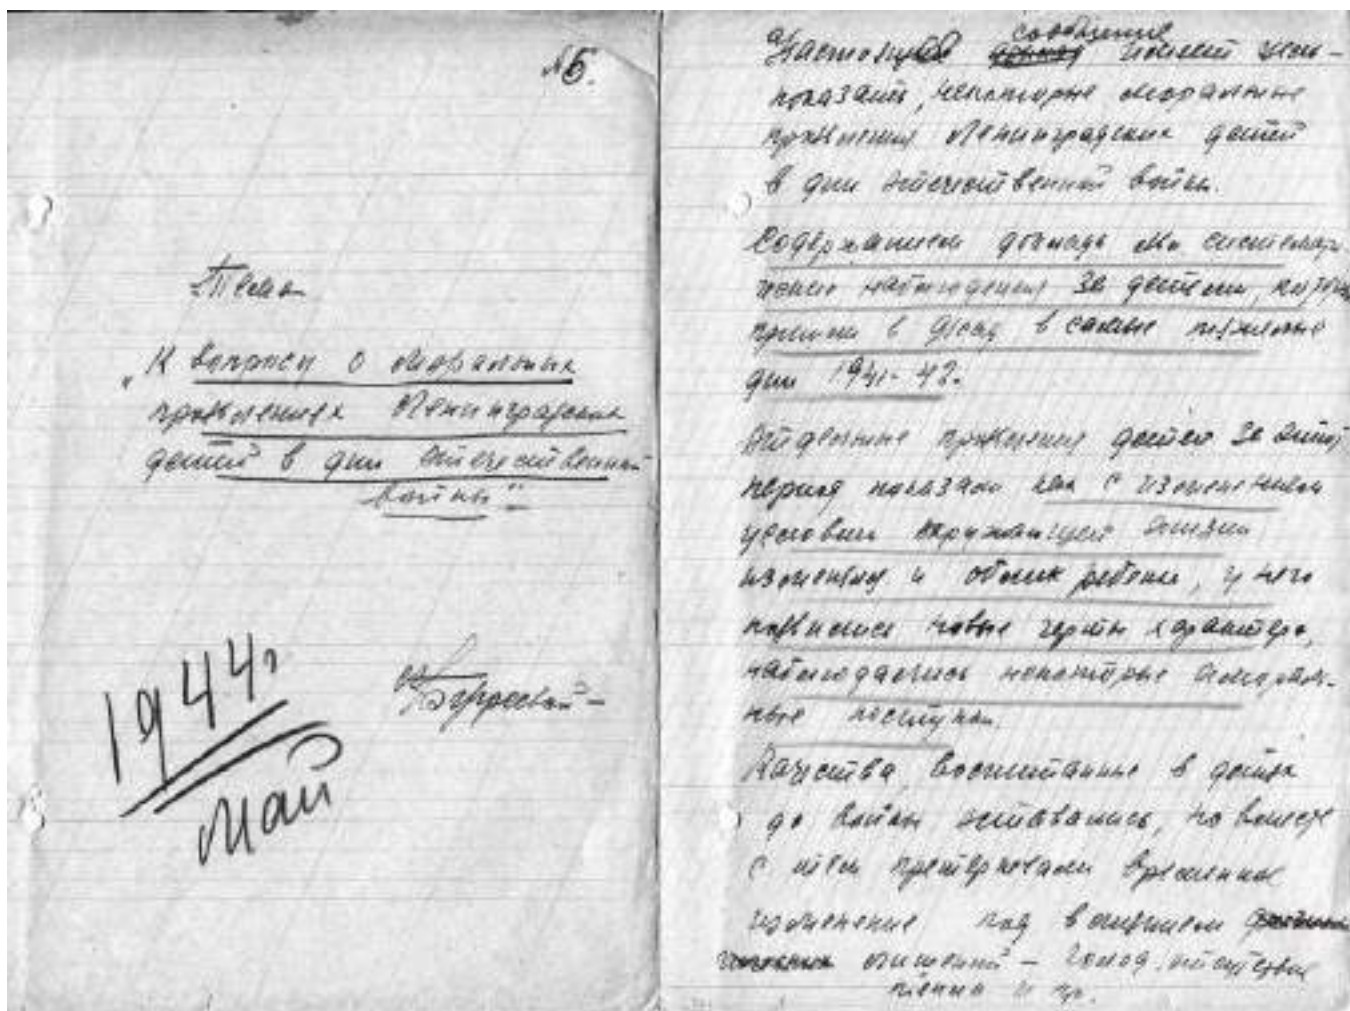 № 5.
Тема
"К вопросу о моральных
проявлениях Ленинградских
детей в дни отечественной
войны"
1944 г
Май
сообщение
Настоящее имеет цель
показать, некоторые моральные
проявления Ленинградских детей
в дни отечественной войны.
Содержанием доклада
наблюдения за детьми,
пришли в д/сад в самые тяжелые
дни 1941-42.
Отдельные проявления детей за этот
период показали как с изменением
условий окружающей жизни
изменился и облик ребенка, у него
появились новые черты характера,
наблюдались некоторые амораль-
ные поступки.
Качества, воспитанные в детях
до войны оставались, но вместе
с тем претерпевали временное
изменение под влиянием
лишений - голод, отсутствие
и пр.